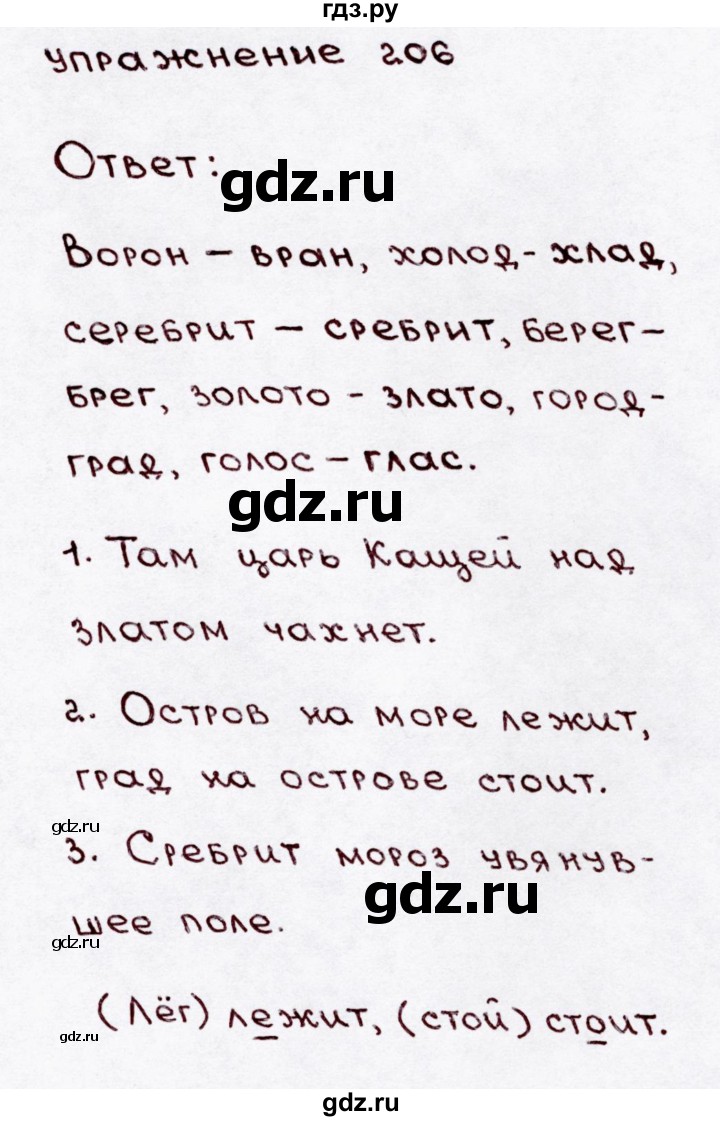 гдз.ру
упражнение 206
Ответ:
gdz.ru
Ворон – вран, холод- хлад,
серебрит – сребрит, берег-
брег, золото - злато, город-
град, голос – глас.
gdz.ru
1. Там царь Кащей над
златом чахнет.
2. Остров на море лежит,
град на острове стоит.
gdz.ru
3. Сребрит мороз увянув-
gdz.ru
шее поле.
gdz.ru
(Лёг) лежит, (стой) стоит.
gdz.ru
gdz.ru